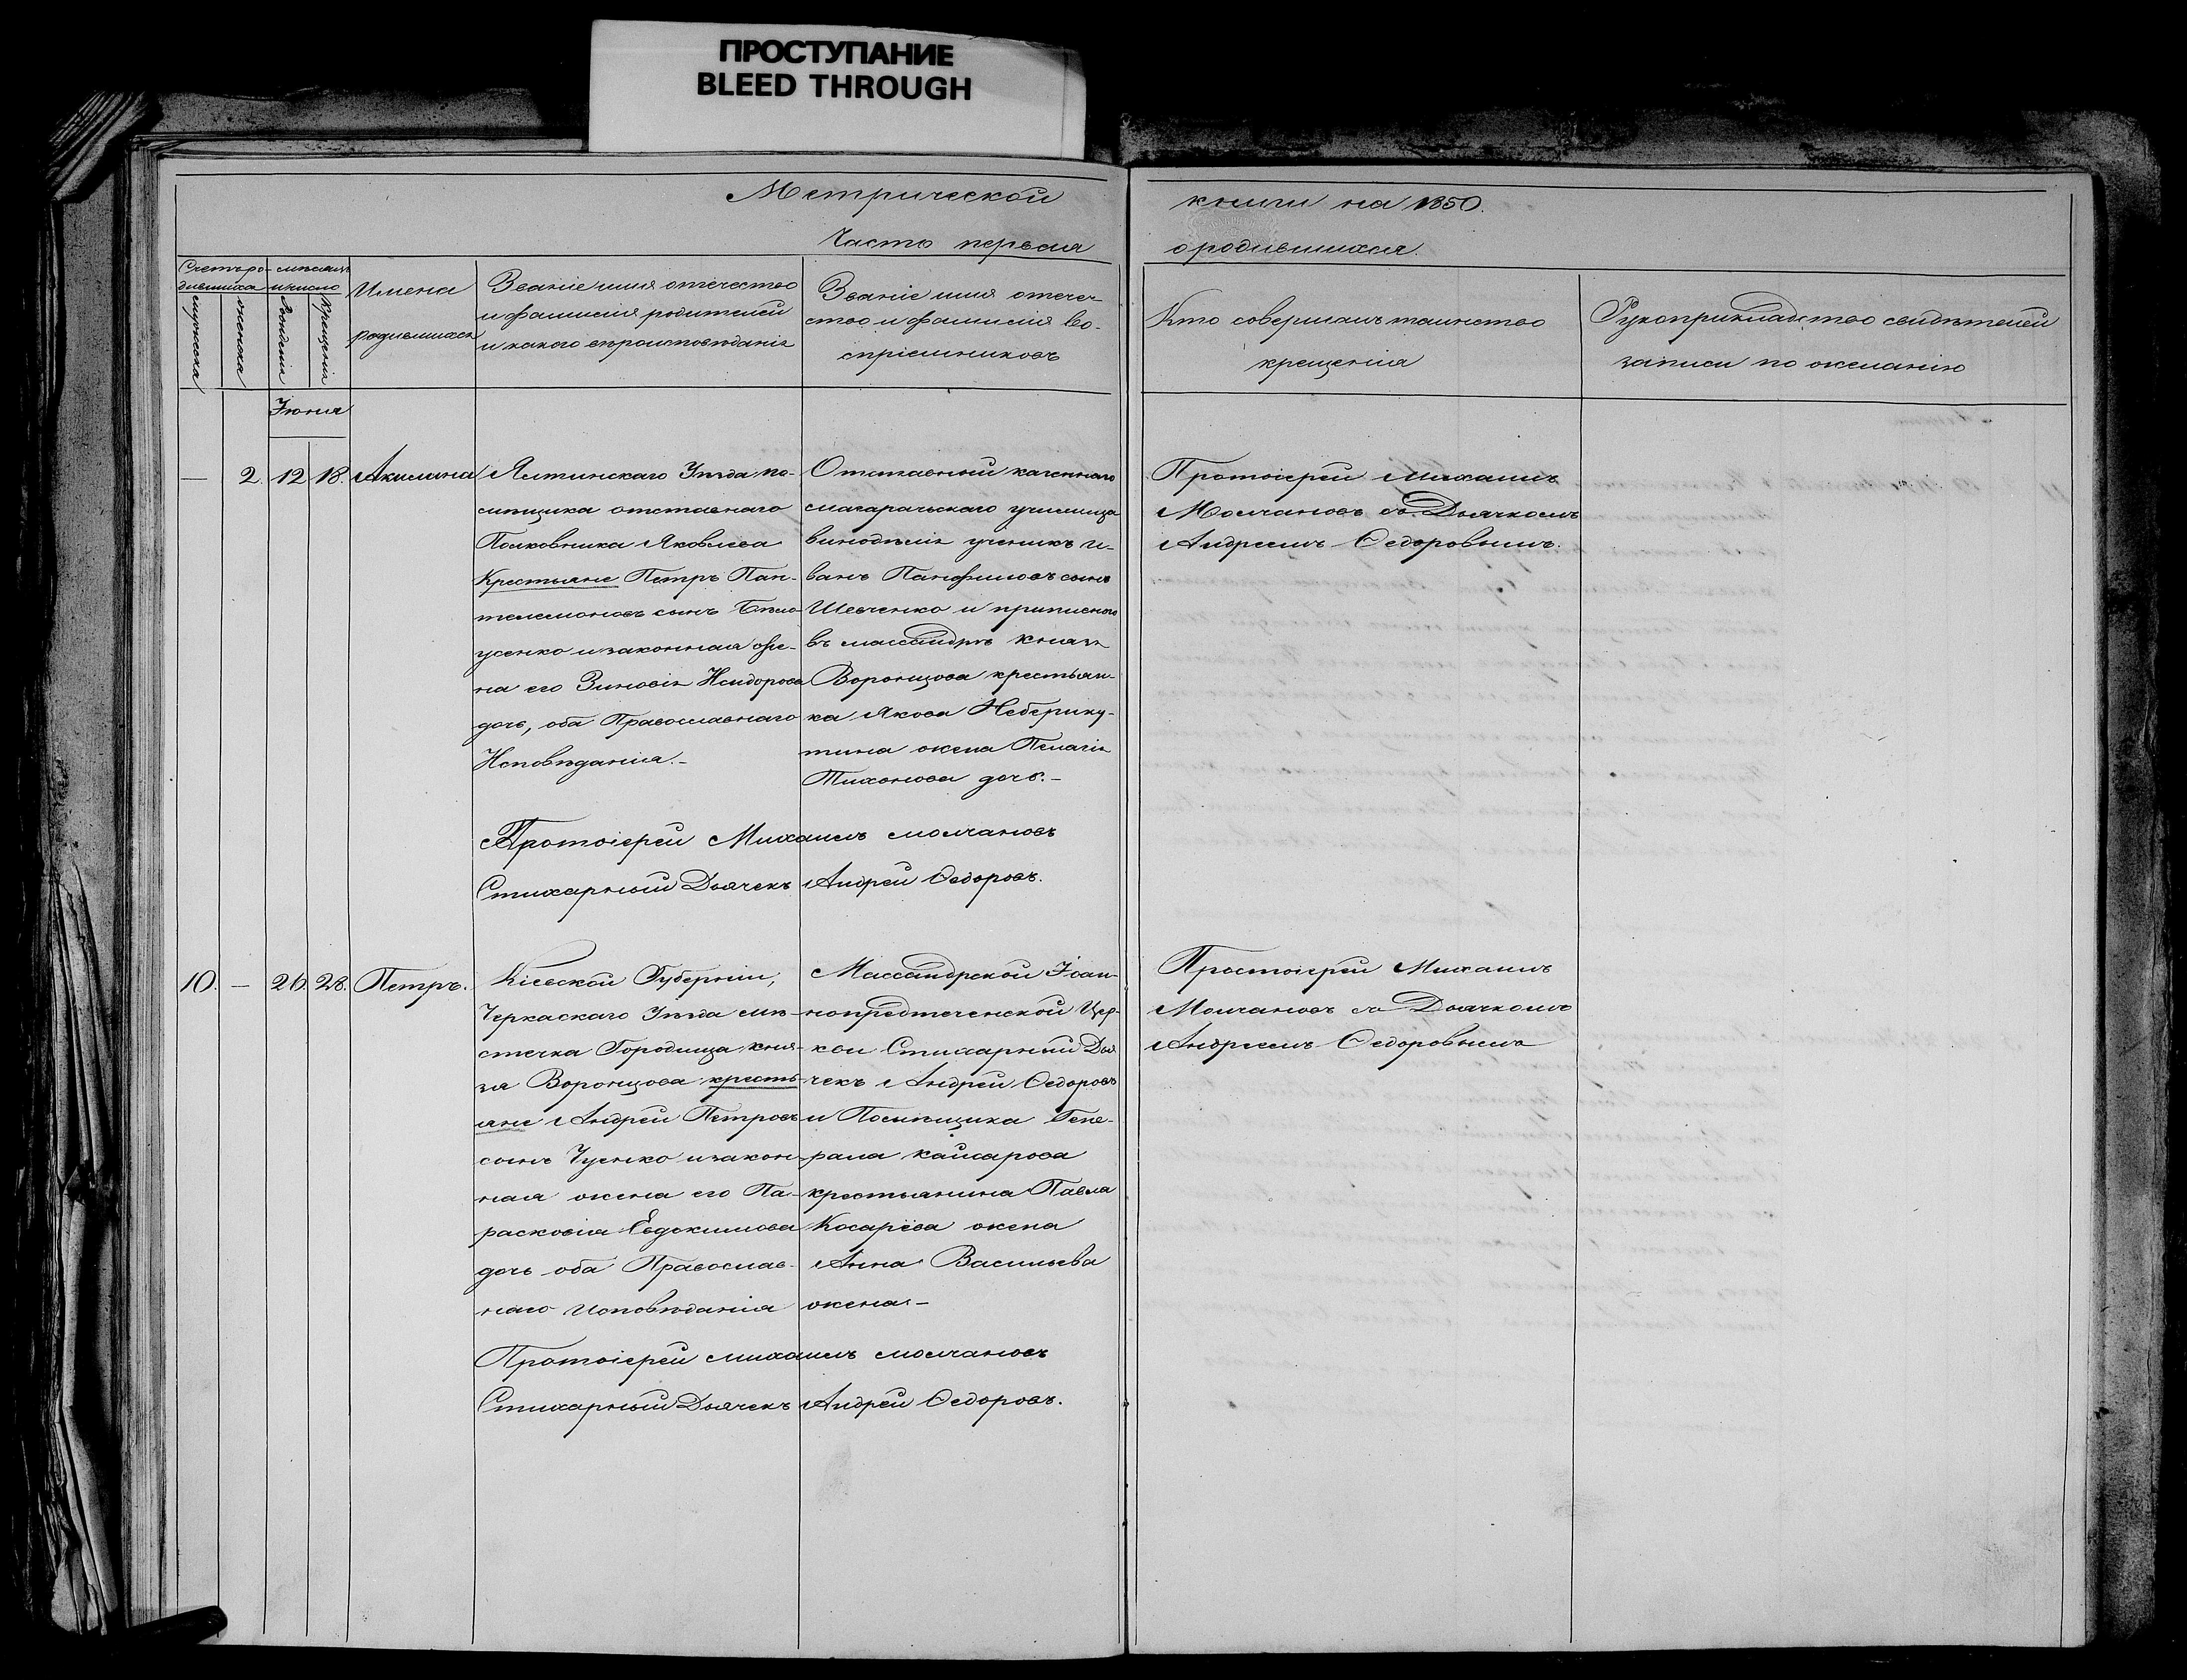 ПРОСТУПАНИЕ
BLEED THROUGH
Метрической
Часть первая
книги на 1850.
о родившихся.
Счетъ ро-
дившихся
мѣсяцъ
и число
мужеска
женска
Рожденія
Крещенія
Имена
родившихся
Званіе имя отечество
и фамилія родителей
и какого вѣроисповѣданія
Званіе имя отечес-
тво и фамилія во-
спріемниковъ
Кто совершилъ таинство
крещенія
Рукоприкладство свидѣтелей
записи по желанію
Іюня
— 2. 12 18. Акилина
Ялтинскаго Уѣзда по-
мѣщика отставнаго
Полковника Яковлева
Крестьяне Петръ Пан-
телеимоновъ сынъ Бѣло
усенко и законная же-
на его Зиновія Исидорова
дочь, оба Православнаго
Исповѣданія.-
Отставный казеннаго
магарачьскаго училища
винодѣлія ученикъ И-
ванъ Панфиловъ сынъ
Шевченко и приписного
въ массандрѣ Князя
Воронцова крестьян-
ка Якова Неберику-
тина жена Пелагія
Тихонова дочь.-
Протоіерей Михаилъ
Молчановъ съ Дьячкомъ
Андреемъ Ѳедоровымъ.
Протоіерей Михаилъ молчановъ
Стихарный Дьячекъ Андрей Ѳедоровъ.
10. — 26. 28. Петръ.
Кіевской Губерніи,
Черкаскаго Уѣзда мѣ-
стечка Городища кня-
зя Воронцова кресть-
яне Андрей Петровъ
сынъ Чуенко и закон-
ная жена его Па-
расковія Евдокимова
дочь оба Православ-
наго Исповѣданія
Массандрской Іоан-
нопредтеченской Цер-
кви Стихарный Дья
чекъ Андрей Ѳедоровъ
и Помѣщика Гене-
рала кайсарова
крестьянина Павла
Косарева жена
Анна Васильева
жена.-
Протоіерей Михаилъ
Молчановъ съ Дьячкомъ
Андреемъ Ѳедоровымъ
Протоіерей михаилъ молчановъ
Стихарный Дьячекъ Андрей Ѳедоровъ.